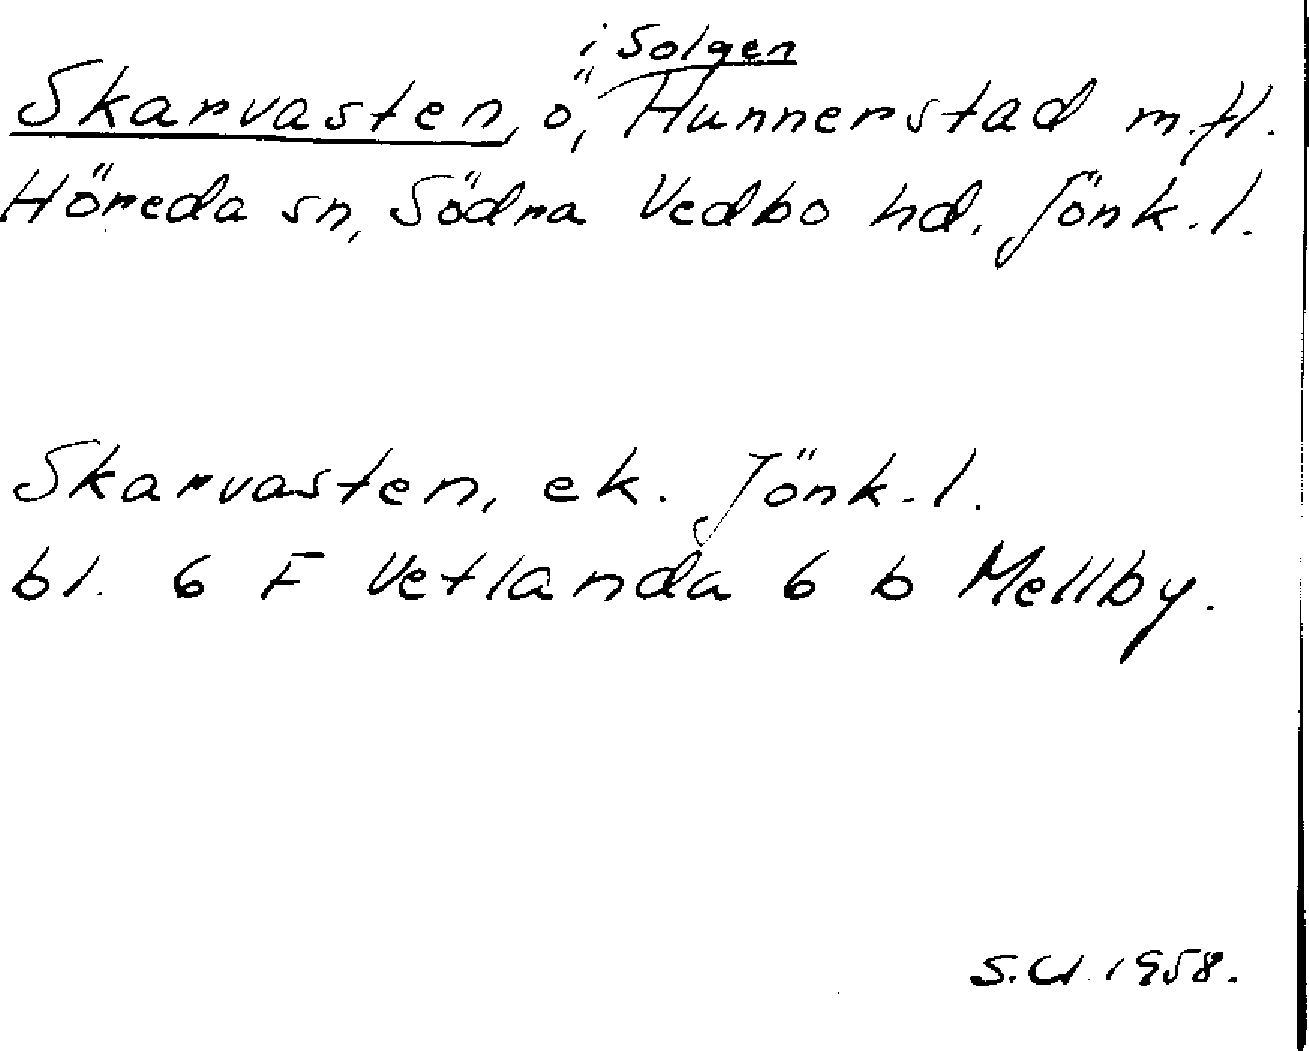 i Solgen
Skarvasten, ö, Hunnerstad m.fl.
Höreda sn, Södra Vedbo hd. Jönk.l.
Skarvasten, ek. Jönk.l.
bl. 6 F Vetlanda 6 b Mellby.
S.U. 1958.